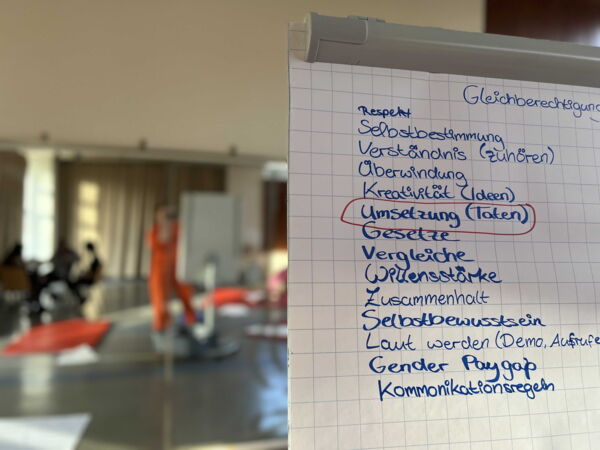 Gleichberechtigung
Respekt
Selbstbestimmung
Verständnis (zuhören)
Überwindung
Kreativität (Ideen)
Umsetzung (Taten)
Gesetze
Vergleiche
Willensstärke
Zusammenhalt
Selbstbewusstsein
Laut werden (Demo, Aufrufe
Gender Paygap
Kommonikationsregeln